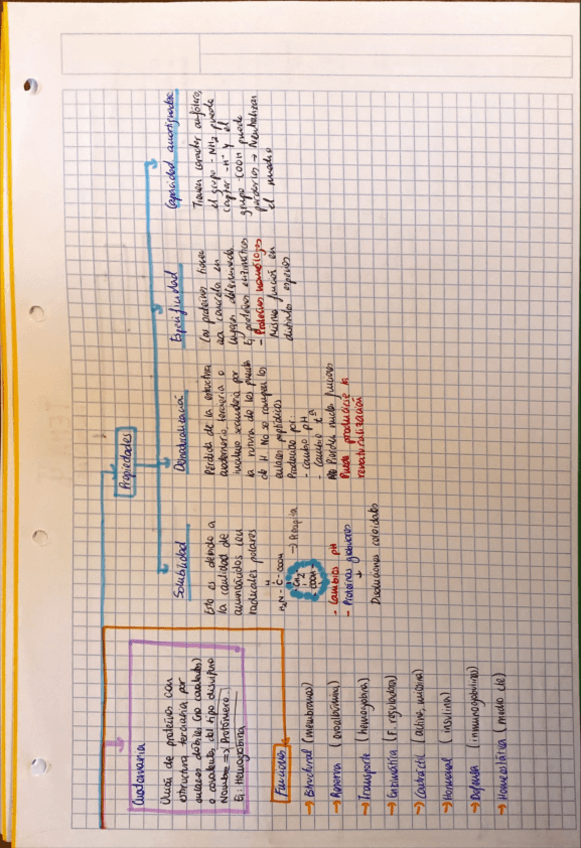 Cuaternaria
Unión de proteínas con
estructura terciaria por
enlaces débiles (no covalentes)
o covalentes del tipo disulfuro
Nombre => Protómero
Ej: Hemoglobina
Funciones
→ Estructural (membranas)
→ Reserva (ovoalbúmina)
→ Transporte (hemoglobina)
→ Enzimática (F. reguladora)
→ Contráctil (actina, miosina)
→ Hormonal (insulina)
→ Defensa (inmunoglobulinas)
→ Homeostática (medio cte)
Propiedades
Solubilidad
Esto es debido a
la cantidad de
aminoácidos con
radicales polares
H
H₂N - C - COOH
CH₂
COOH
- Cambios pH
- Proteínas globulares
↓
Disoluciones coloidales
Desnaturalización
Pérdida de la estructura
cuaternaria, terciaria o
incluso secundaria por
la rotura de los puentes
de H. No se rompen los
enlaces peptídicos
Producido por:
- cambio pH
- Cambio tª
Pierden mucha funciones
Puede producirse la
renaturalización
Especificidad
Las proteínas tienen
una concreta en
lugares determinados
Ej proteínas enzimáticas
- Proteínas homólogas
Misma función en
distintas especies
Capacidad amortiguadora
Tienen carácter anfótero,
el grupo -NH₂ puede
captar H⁺ y el
grupo COOH puede
perderlos → Neutralizar
el medio